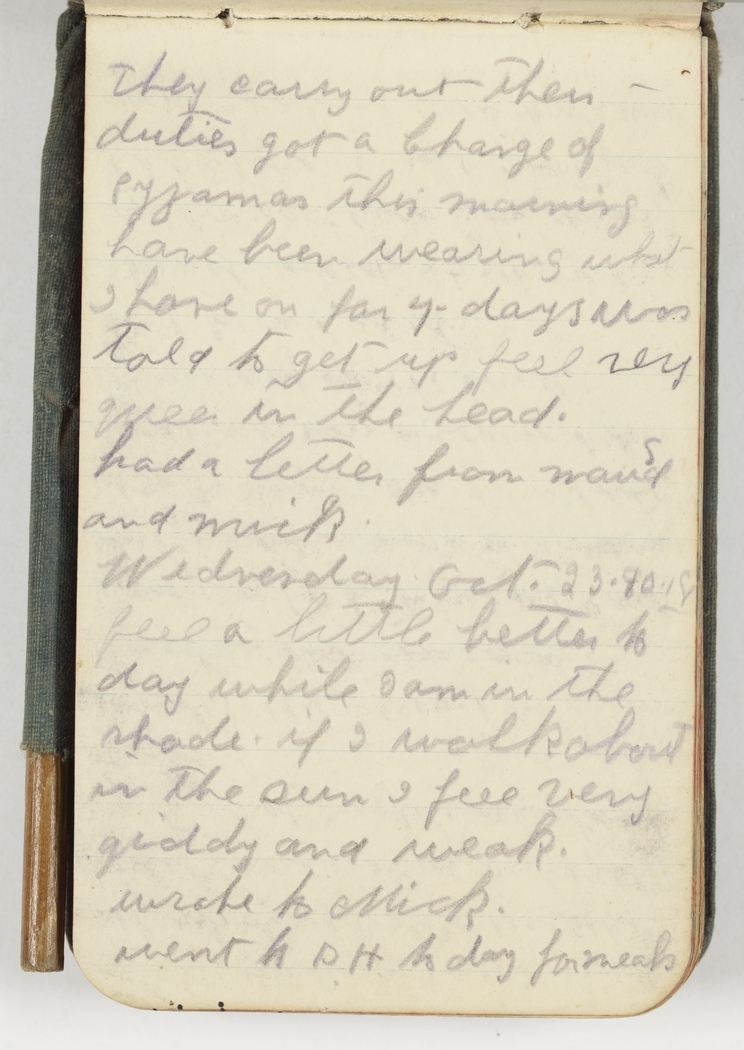 They carry out their -
duties got a Change of
pyjamas this morning
have been wearing what
I have on for 4 days was
told to get up feel very
queer in the head.
had a letter from mauds
and mick.
Wednesday Oct. 23.10.18
feel a little better to
day while I am in the
shade. if I walk about
in the sun I feel very
giddy and weak.
wrote to Mick.
went to D H to day for meals